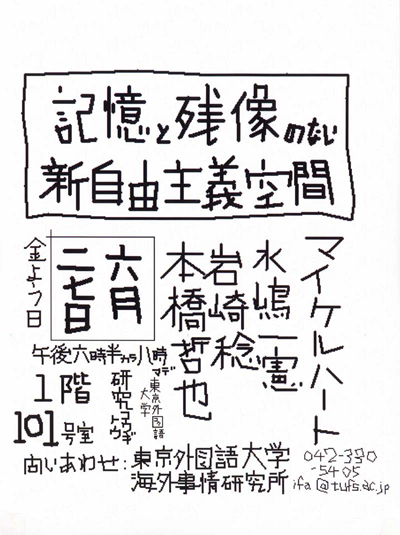 記憶と残像のない
新自由主義空間
マイケルハート
水嶋一憲
岩崎稔
本橋哲也
六月
二七日
金よう日
午後六時半から八時マデ
東京外国語大学
研究コウギトウ
1階
101号室
問いあわせ:東京外国語大学
海外事情研究所
042-330
-5405
ifa@tufs.ac.jp